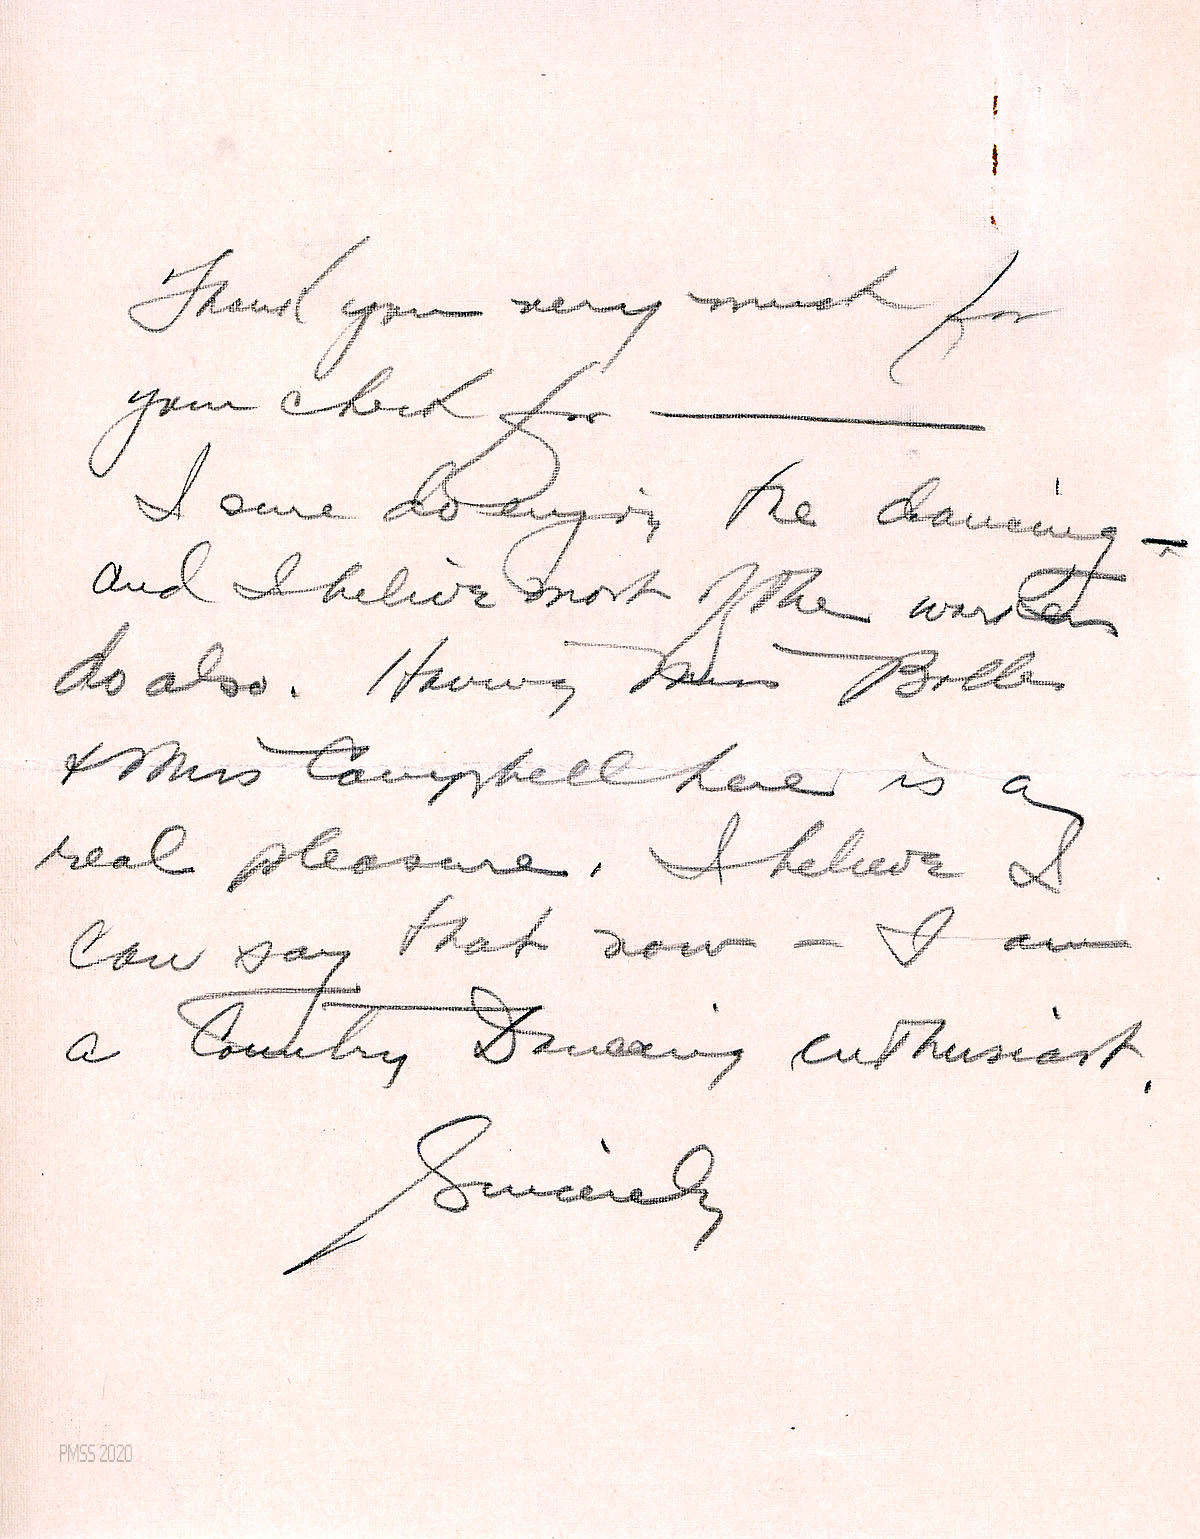 Thank you very much for
your check for ————
I sure do enjoy the dancing —
and I believe most of the workers
do also. Having Miss Bolles
& Mrs Campbell here is a
real pleasure. I believe I
can say that now – I am
a Country Dancing enthusiast.
Sincerely
PMSS 2020